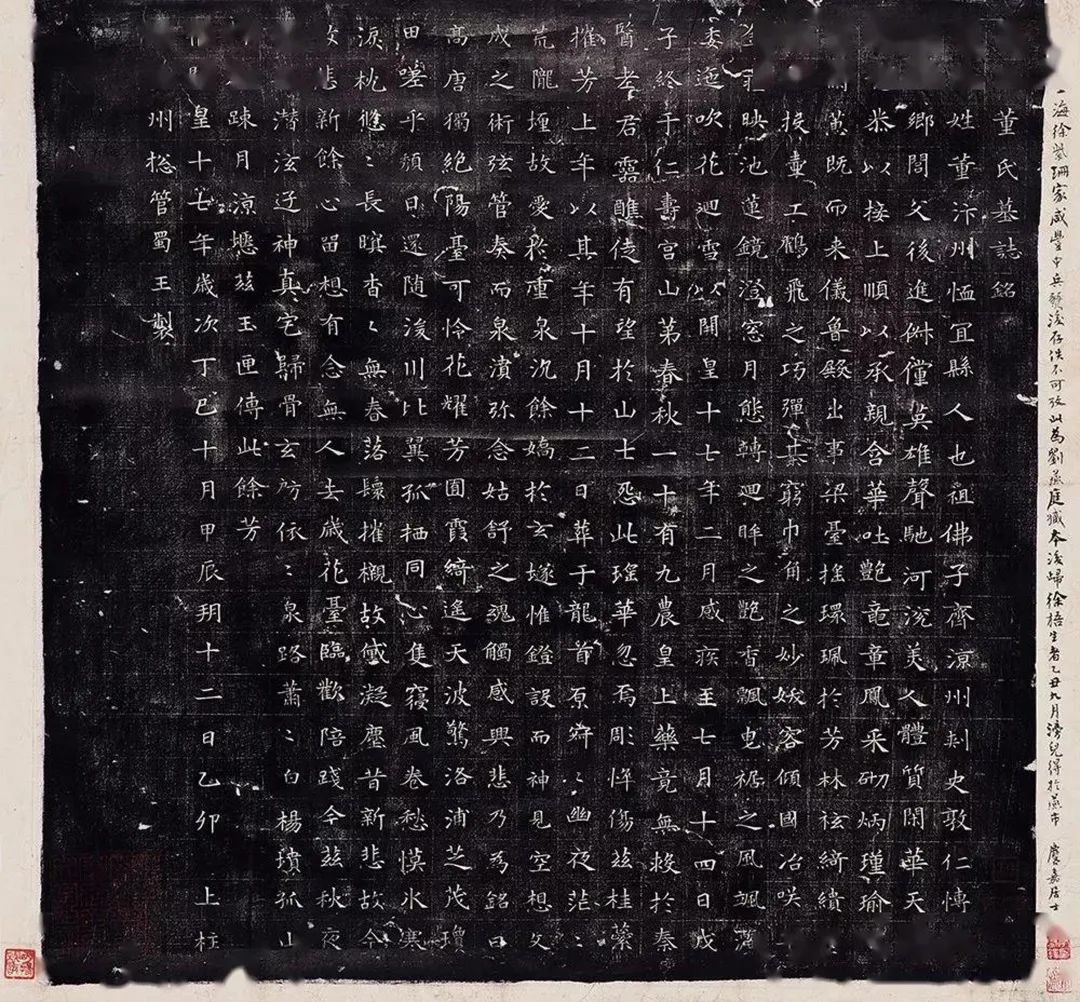 海徐紫珊家咸豐中兵燹後存佚不可攷此為劉燕庭臧本後歸徐梧生者乙丑九月滂兒得於燕市 慶嘉居士
董氏墓誌銘
姓董汴州恤宜縣人也祖佛子齊涼州刾史敦仁愽
鄉閭父後進俶儻英雄聲馳河兗美人體質閑華天
恭以接上順以承親含華吐艷竜章鳳采砌炳瑾瑜
既而来儀魯殿出事梁臺搖環珮於芳林袨綺繢
投壷工鶴飛之巧彈棊窮巾角之妙妖客傾國冶咲
映池蓮鏡澄窓月態轉迴眸之艷香飄曳裾之風颯灑
委迤吹花迴雪以開皇十七年二月感疾至七月十四日戊
子終于仁壽宮山第春秋一十有九農皇上藥竟無救於秦
醫老君靈醮徒有望於山士怨此瑤華忽焉彫悴傷茲桂蘂
摧芳上年以其年十月十二日葬于龍首原寂〻幽夜茫〻
荒隴埋故愛於重泉沉餘嬌於玄隧惟鐙設而神見空想文
成之術弦管奏而泉濆弥念姑舒之魂觸感興悲乃為銘曰
高唐獨絕陽臺可怜花耀芳囿霞綺遙天波驚洛浦芝茂瓊
田嗟乎頹日還随浚川比翼孤栖同心隻寢風卷愁慔氷寒
淚枕悠〻長暝杳〻無春落鬟摧櫬故黛凝塵昔新悲故今
故悲新餘心留想有念無人去歲花臺臨歡陪踐今茲秋夜
潛泫迓神真宅歸骨玄房依〻泉路蕭〻白楊墳孤山
踈月涼瘞茲玉匣傳此餘芳
皇十七年歲次丁巳十月甲辰朔十二日乙卯 上柱
州揔管蜀王製